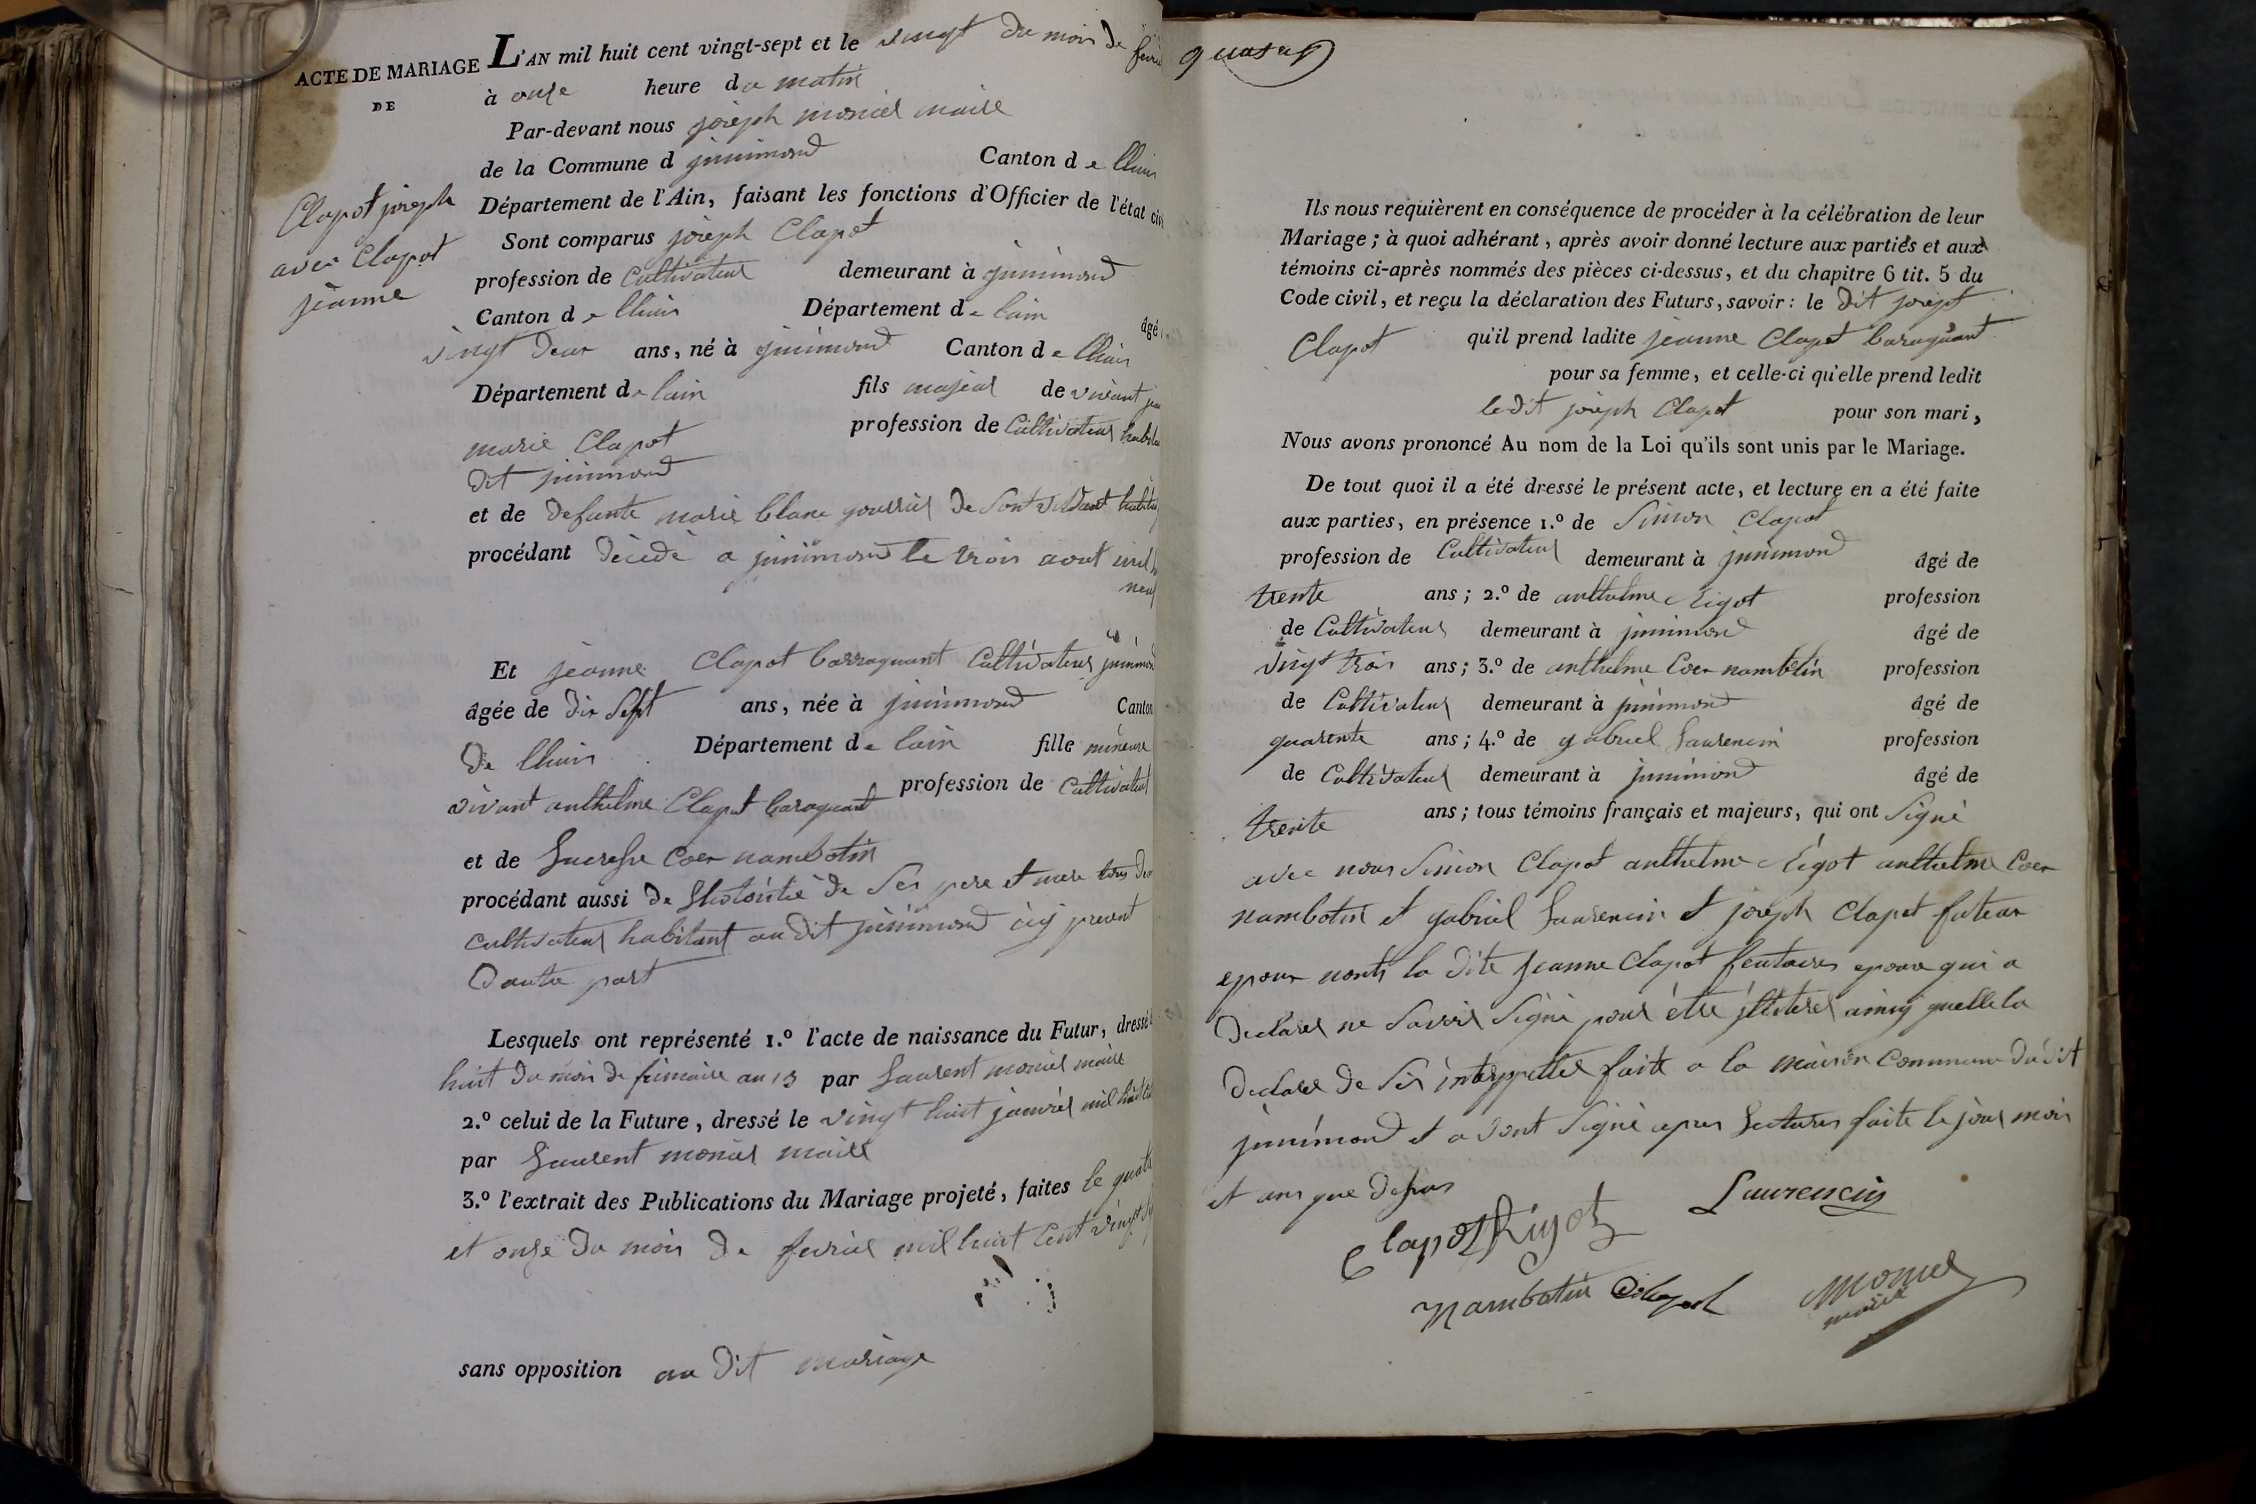 ACTE DE MARIAGE
DE
Clapot joseph
avec Clapot
jeanne
L'AN mil huit cent vingt-sept et le vingt du mois de
à onze heure du matin
Par-devant nous joseph moniel maire
de la Commune d jnimond Canton de lhuis
Département de l'Ain, faisant les fonctions d'Officier de l'état civ
Sont comparus joseph Clapot
profession de Cultivateur demeurant à jnimond
Canton de lhuis Département de lain âgé
vingt deux ans, né à jnimond Canton de lhuis
Département de lain fils majeur de vivant
marie Clapot profession de Cultivateur
dit jnimond
et de defunte marie blanc de Sont vivant
procédant décédé a jnimond le trois aout mil
neuf
Et jeanne Clapot barraquant Cultivateur
âgée de dix Sept ans, née à jnimond Canton
De lhuis Département de lain fille mineure
vivant anthelme Clapot baraquant profession de Cultivateur
et de Coer nambotin
procédant aussi de de Ses pere et mere tous
cultivateur habitant au dit jnimond icy present
D'autre part
Lesquels ont représenté 1.º l'acte de naissance du Futur, dressé
huit du mois de frimaire an 13 par Laurent moniel maire
2.º celui de la Future, dressé le vingt huit janvier mil huit
par Laurent moniel maire
3.º l'extrait des Publications du Mariage projeté, faites le
et onze du mois de fevrier mil huit Cent vingt
sans opposition au dit mariage
Ils nous requièrent en conséquence de procéder à la célébration de leur
Mariage ; à quoi adhérant, après avoir donné lecture aux parties et aux
témoins ci-après nommés des pièces ci-dessus, et du chapitre 6 tit. 5 du
Code civil, et reçu la déclaration des Futurs, savoir : le dit joseph
Clapot qu'il prend ladite jeanne Clapot baraquant
pour sa femme, et celle-ci qu'elle prend ledit
ledit joseph Clapot pour son mari,
Nous avons prononcé Au nom de la Loi qu'ils sont unis par le Mariage.
De tout quoi il a été dressé le présent acte, et lecture en a été faite
aux parties, en présence 1.º de Simon Clapot
profession de Cultivateur demeurant à jnimond âgé de
trente ans ; 2.º de anthelme Rigot profession
de Cultivateur demeurant à jnimond âgé de
vingt trois ans ; 3.º de anthelme Coer nambotin profession
de Cultivateur demeurant à jnimond âgé de
quarente ans ; 4.º de gabriel Laurencin profession
de Cultivateur demeurant à jnimond âgé de
trente ans ; tous témoins français et majeurs, qui ont Signé
avec nous Simon Clapot anthelme Rigot anthelme Coer
nambotin et gabriel Laurencin et joseph Clapot futeur
epoux la dite jeanne Clapot epouse qui a
declarer ne Savoir Signé pour être
declarer de faite a la maison Commune dudit
jnimond et avont Signé apres Lectures faite le jour mois
et ans que desus
Clapot Rigot Laurencin
Nambotin Clapot Moniel
maire